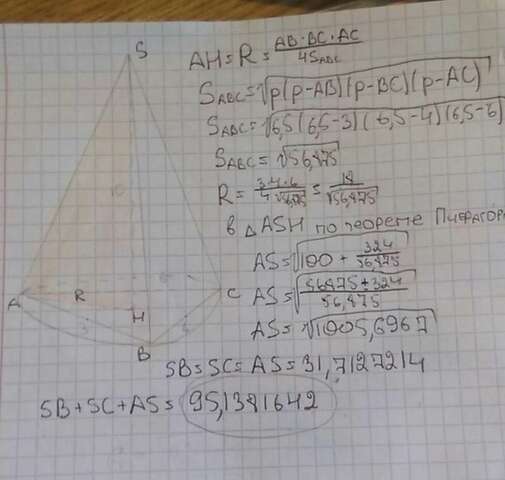 S
AH=R= AB·BC·AC / 4S_ABC
S_ABC=√p(p-AB)(p-BC)(p-AC)
S_ABC=√6,5(6,5-3)(6,5-4)(6,5-6)
S_ABC=√56,875
R= 3·4·6 / 4√56,875 = 18 / √56,875
В △ASH по теореме Пифагора
AS=√100 + 324 / 56,875
A R H C
AS=√56875+324 / 56,875
3
B
AS=√1005,6967
SB=SC=AS=31,7127214
SB+SC+AS= 95,1381642